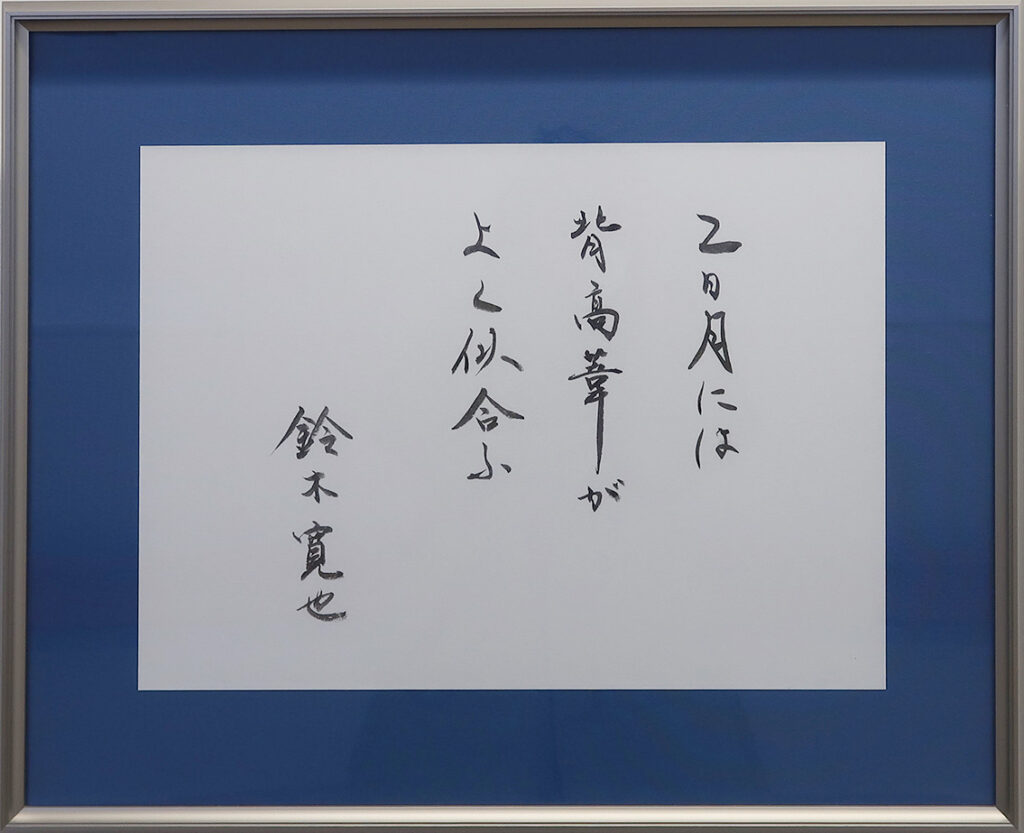 二日月には
背高葦が
よく似合ふ
鈴木寛也